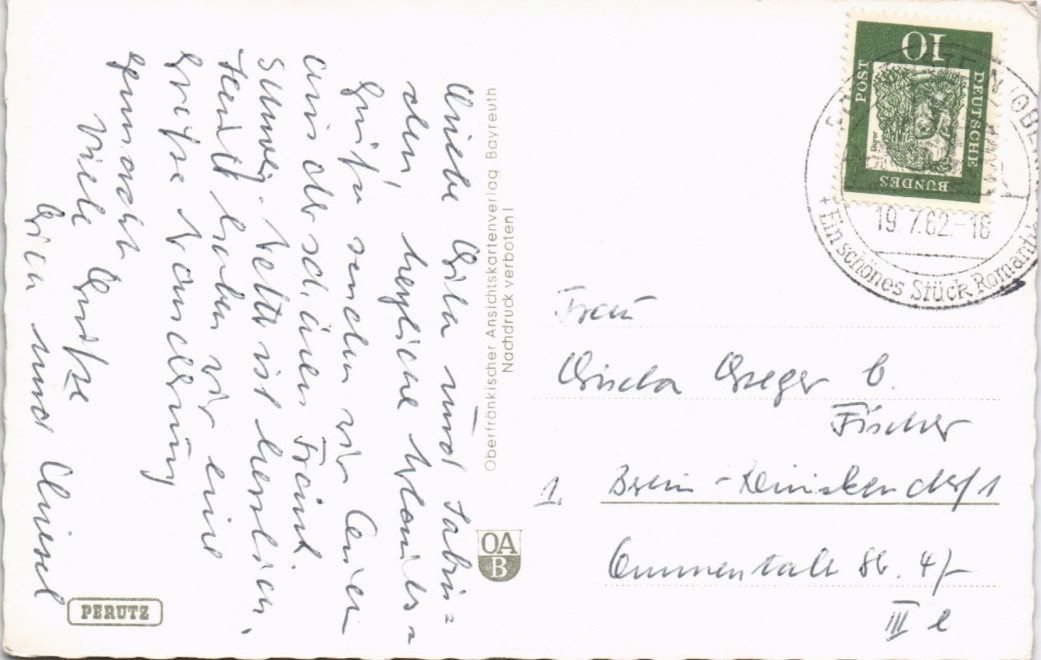 Liebe Gila und Sabin=
chen, herzliche Urlaubs=
grüße senden wir Euch
aus der schönen Fränk.
Schweiz. Wetter ist herrlich,
Heute haben wir eine
große Wanderung
gemacht
Viele Grüße
und
Oberfränkischer Ansichtskartenverlag Bayreuth
Nachdruck verboten!
OA
B
PERUTZ
10
DEUTSCHE
BUNDES
POST
Dürer
19.7.62.-18
+ Ein schönes Stück Romantik
Frau
Gisela Greger b.
Fischer
1. Berlin - Reinickendorf 1
Str. 4/
III l